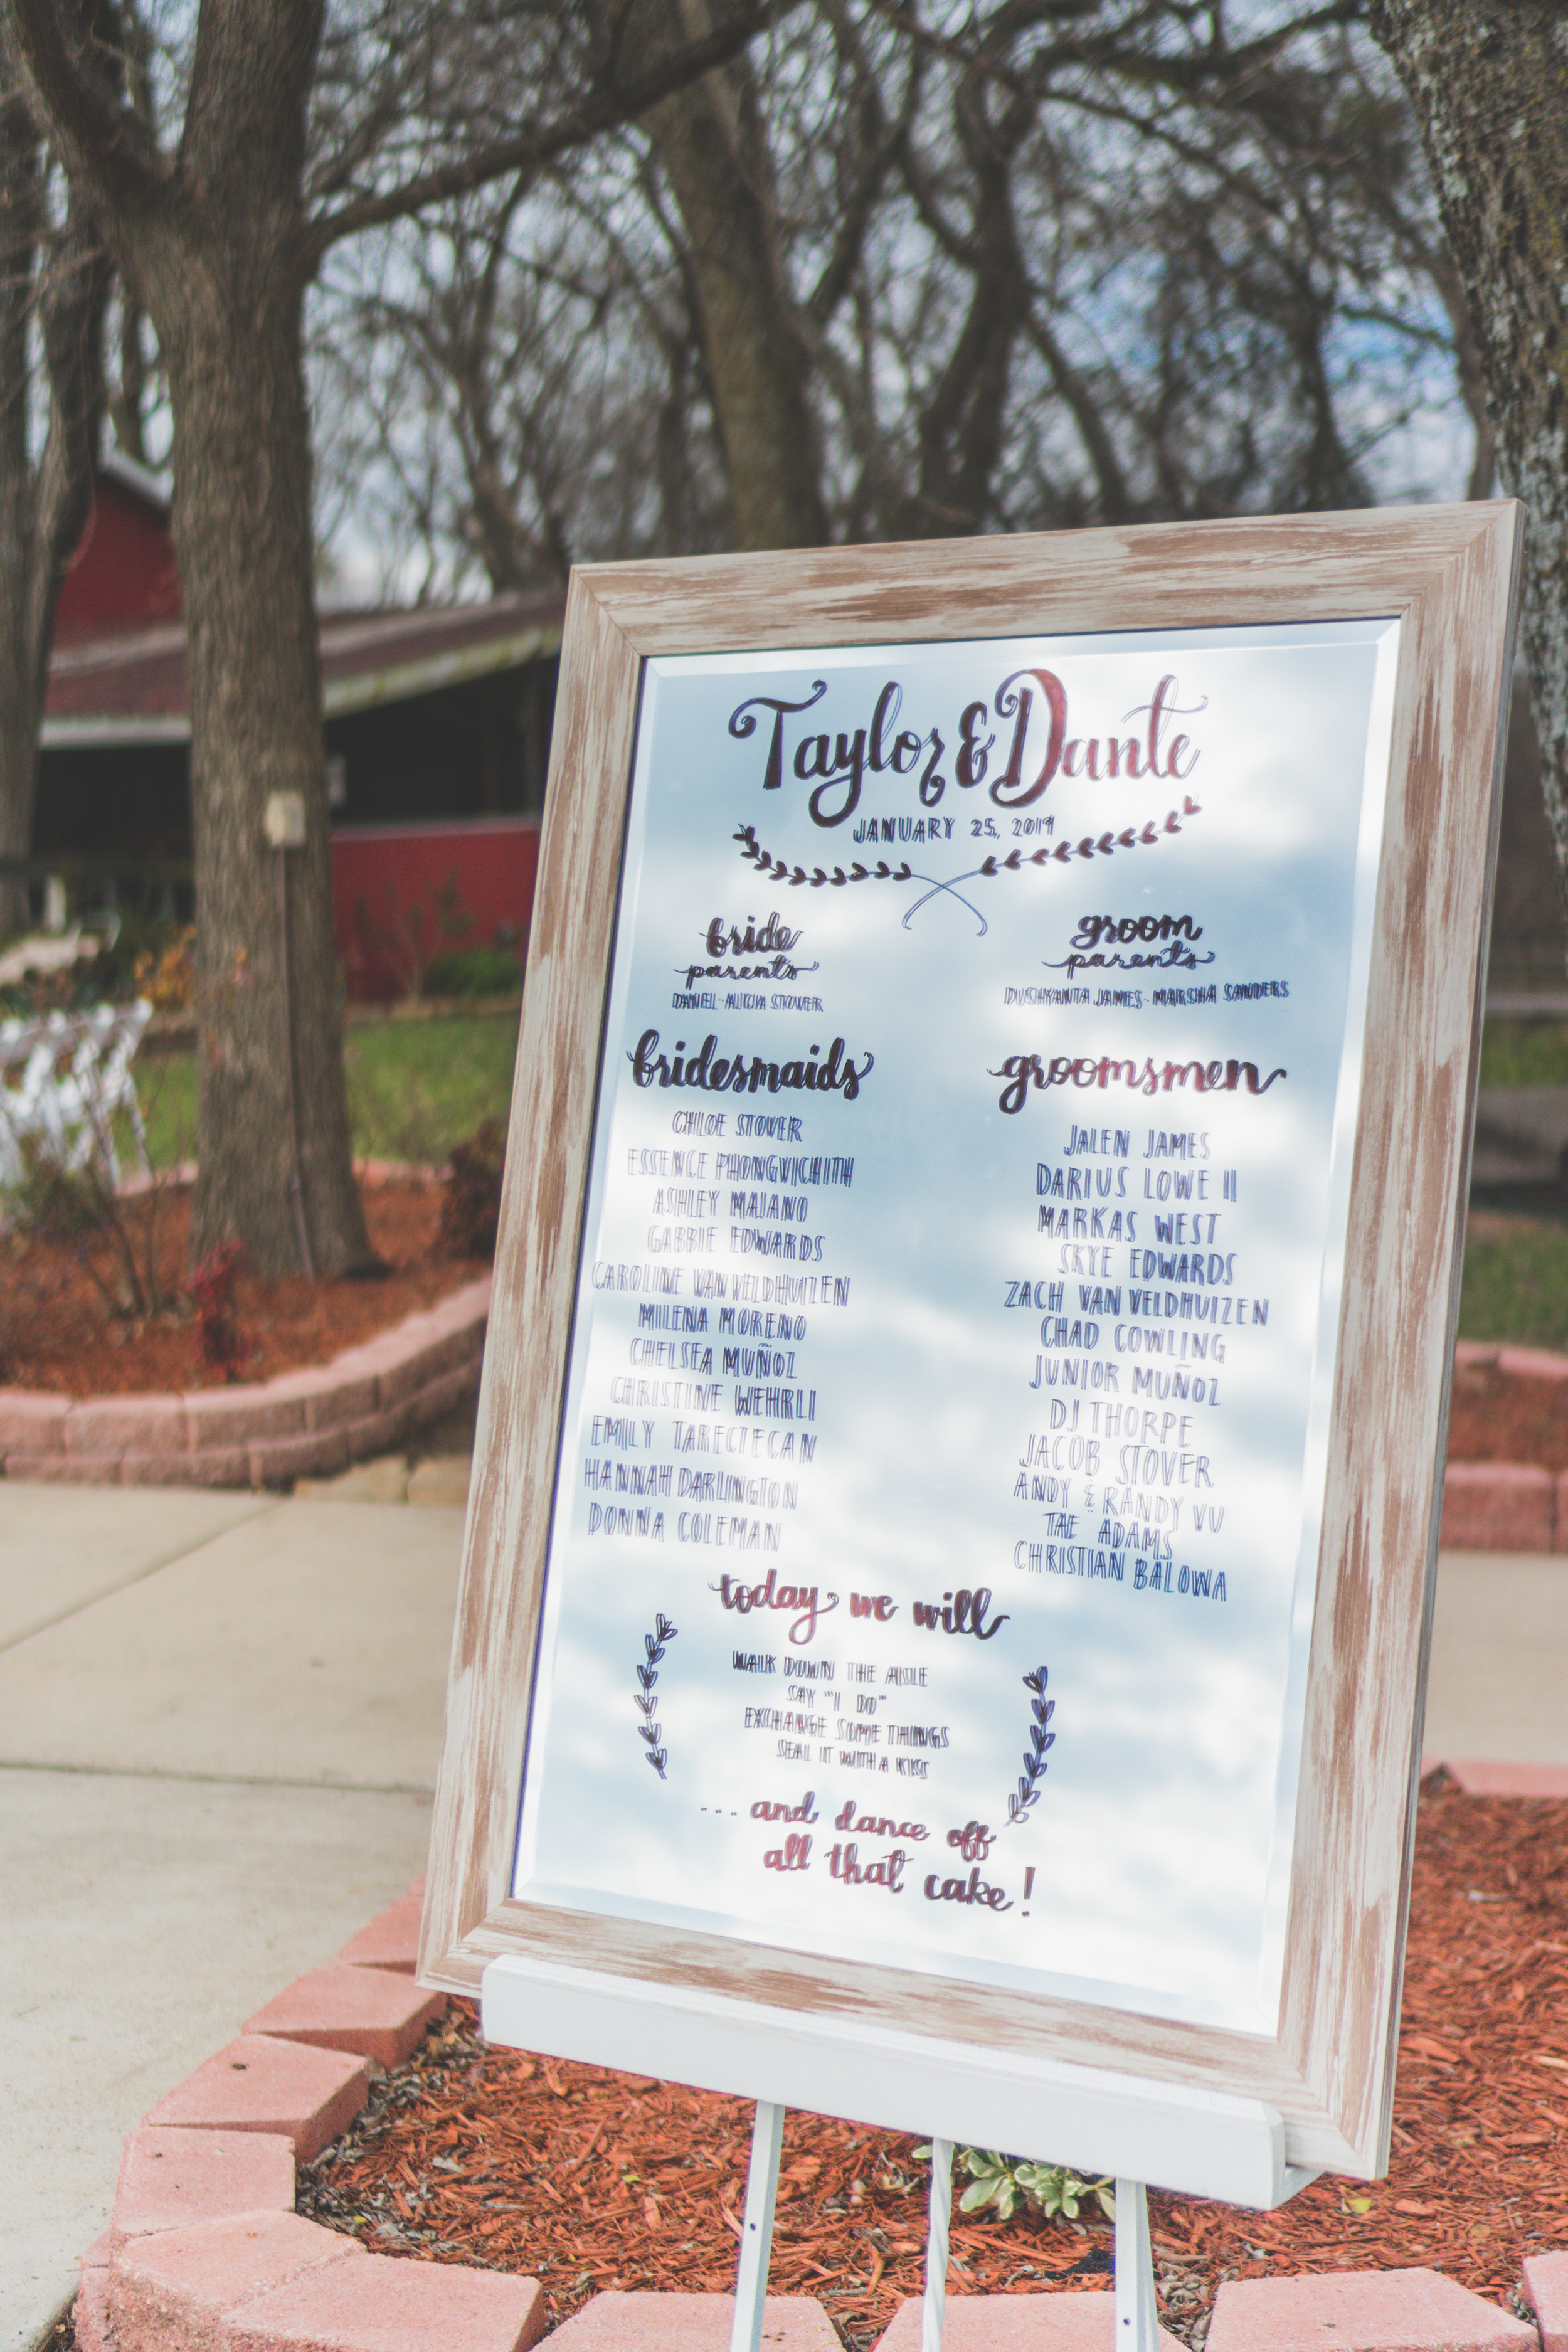 Taylor & Dante
JANUARY 25, 2019
bride
parents
DANIEL - ALICIA STOVER
groom
parents
DUSHYANTA JAMES - MARSHA SANDERS
bridesmaids
CHLOE STOVER
ESSENCE PHONGVICHITH
ASHLEY
GABBIE EDWARDS
CAROLINE VAN VELDHUIZEN
MILENA MORENO
CHELSEA MUÑOZ
CHRISTINE WEHRLI
EMILY
HANNAH DARLINGTON
DONNA COLEMAN
groomsmen
JALEN JAMES
DARIUS LOWE II
MARKAS WEST
SKYE EDWARDS
ZACH VAN VELDHUIZEN
CHAD COWLING
JUNIOR MUÑOZ
DJ THORPE
JACOB STOVER
ANDY & RANDY VU
TAE ADAMS
CHRISTIAN BALOWA
today we will
WALK DOWN THE AISLE
SAY "I DO"
EXCHANGE SOME THINGS
SEAL IT WITH A KISS
... and dance off
all that cake!